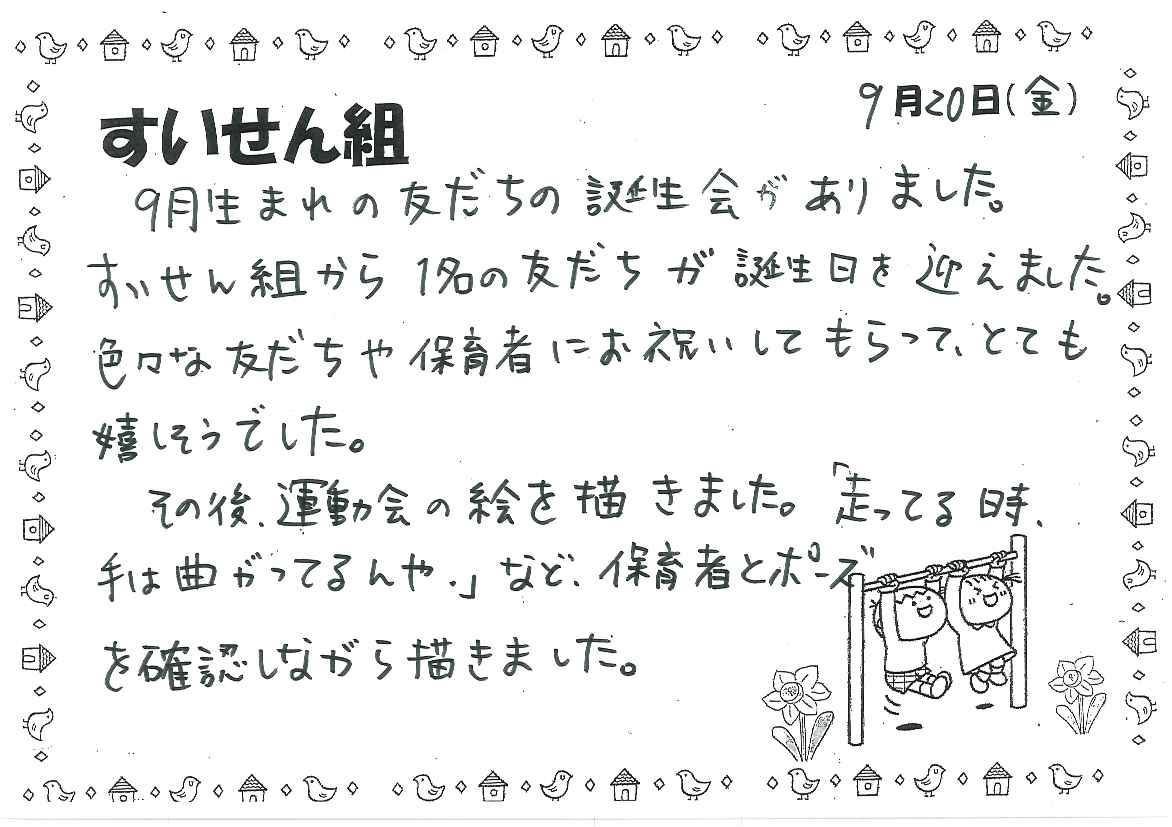 9月20日(金)
すいせん組
9月生まれの友だちの誕生会がありました。
すいせん組から1名の友だちが誕生日を迎えました。
色々な友だちや保育者にお祝いしてもらって、とても
嬉しそうでした。
その後、運動会の絵を描きました。「走ってる時、
手は曲がってるんや.」など、保育者とポーズ
を確認しながら描きました。